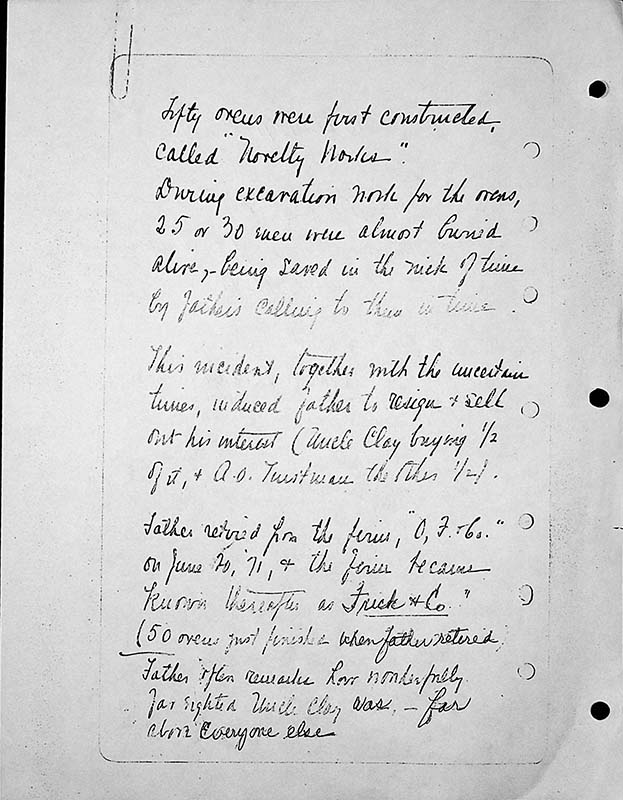 Fifty ovens were first constructed,
called "Novelty Works".
During excavation work for the ovens,
25 or 30 men were almost buried
alive, - being saved in the nick of time
by father's calling to them in time.
This incident, together with the uncertain
times, induced father to resign + sell
out his interest (Uncle Clay buying 1/2
of it, + A.O. Tinstman the other 1/2).
Father retired from the firm, "O, F. + Co."
on June 20, '71, + the firm became
known thereafter as Frick + Co."
(50 ovens just finished when father retired)
Father often remarks how wonderfully
far sighted Uncle Clay was, - far
above everyone else